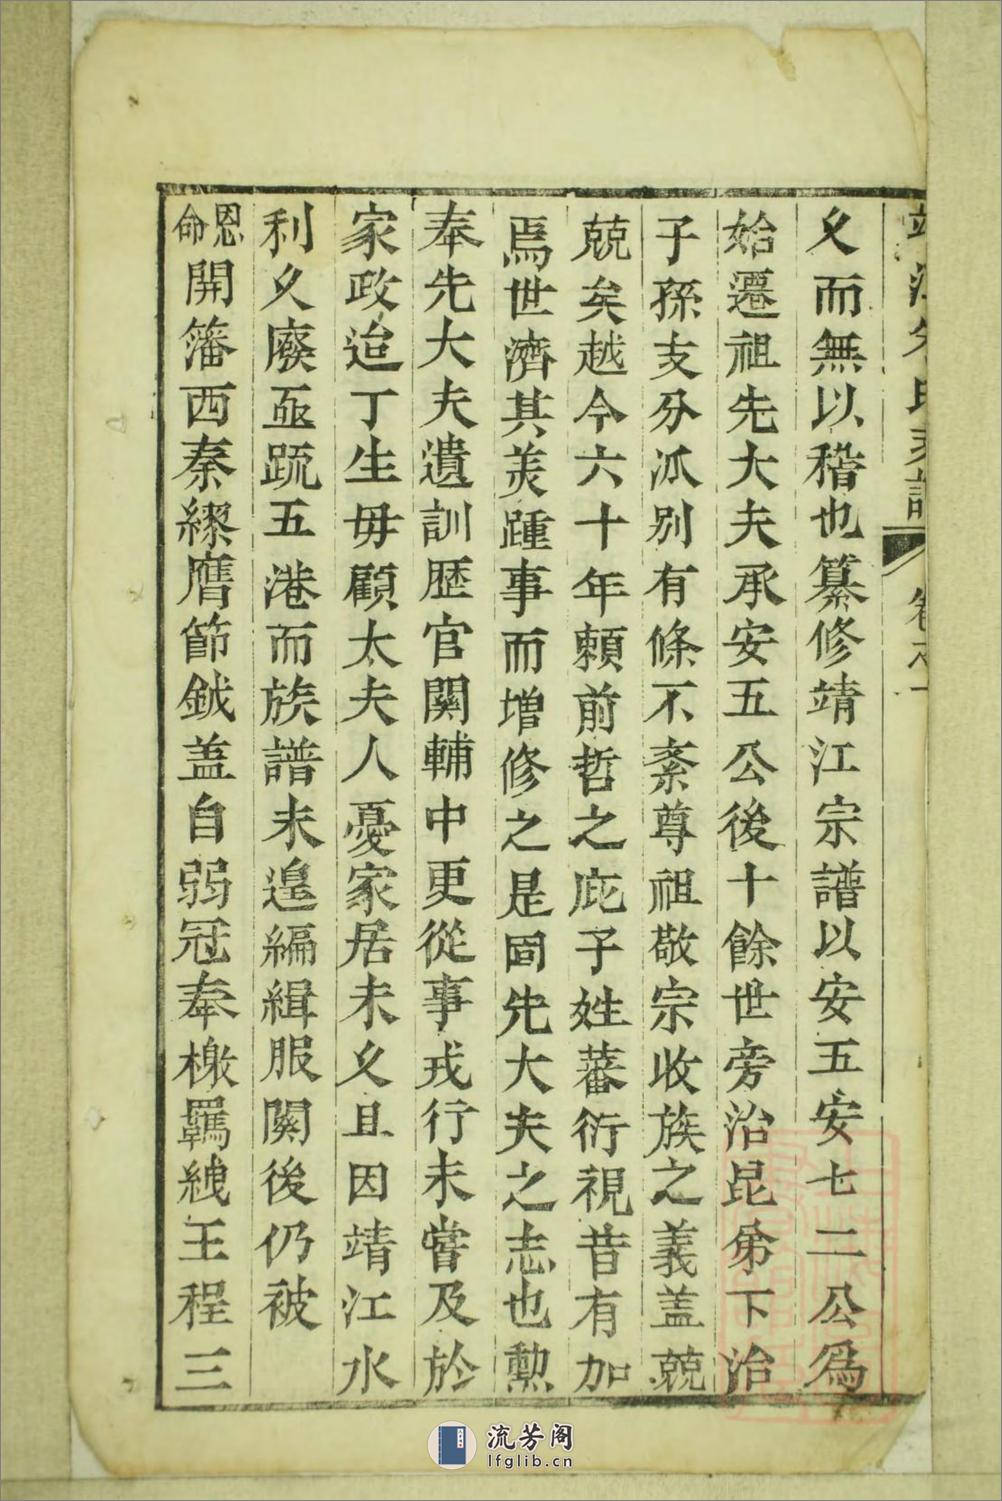 靖江朱氏族譜 卷之一
久而無以稽也纂修靖江宗譜以安五安七二公爲
始遷祖先大夫承安五公後十餘世旁治昆弟下治
子孫支分派別有條不紊尊祖敬宗收族之義蓋兢
兢矣越今六十年賴前哲之庇子姓蕃衍視昔有加
焉世濟其美踵事而增修之是固先大夫之志也勲
奉先大夫遺訓歴官関輔中更從事戎行未嘗及於
家政迨丁生毋顧太夫人憂家居未久且因靖江水
利久廢亟疏五港而族譜未遑編緝服闋後仍被
恩命開籓西秦繆膺節鉞蓋自弱冠奉檄羈絏王程三
流芳阁
lfglib.cn